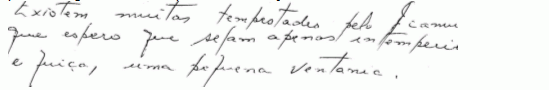 Existem muitas tempestades pelo
que espero que sejam apenas intemperi
e quiça, uma pequena ventania.